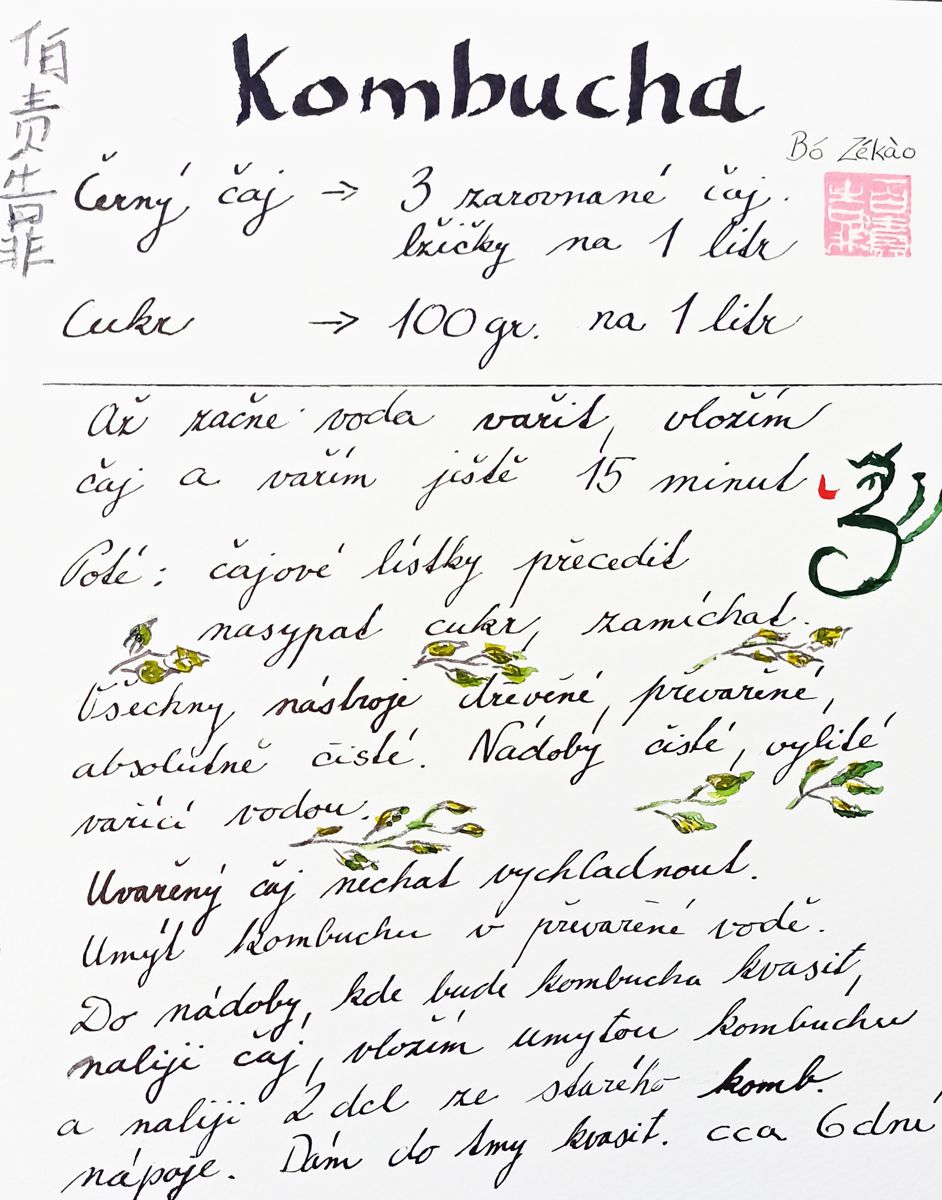 Kombucha
Bó Zékào
伯责告罪
Černý čaj → 3 zarovnané čaj.
lžičky na 1 litr
Cukr → 100gr. na 1 litr
Až začne voda vařit, vložím
čaj a vařím ještě 15 minut
Poté: čajové lístky přecedit
nasypat cukr, zamíchat.
Všechny nástroje dřevěné, převařené,
absolutně čisté. Nádoby čisté, vylité
vařící vodou.
Uvařený čaj nechat vychladnout.
Umýt kombuchu v převařené vodě.
Do nádoby, kde bude kombucha kvasit,
naliji čaj, vložím umytou kombuchu
a naliji 2 dcl ze starého komb.
nápoje. Dám do tmy kvasit. cca 6 dní